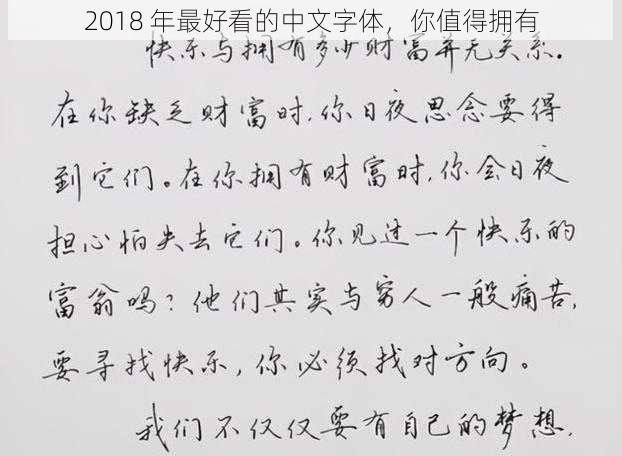 2018 年最好看的中文字体，你值得拥有
快乐与拥有多少财富并无关系.
在你缺乏财富时,你日夜思念要得
到它们。在你拥有财富时,你会日夜
担心怕失去它们。你见过一个快乐的
富翁吗?他们其实与穷人一般痛苦,
要寻找快乐,你必须找对方向。
我们不仅仅要有自己的梦想,